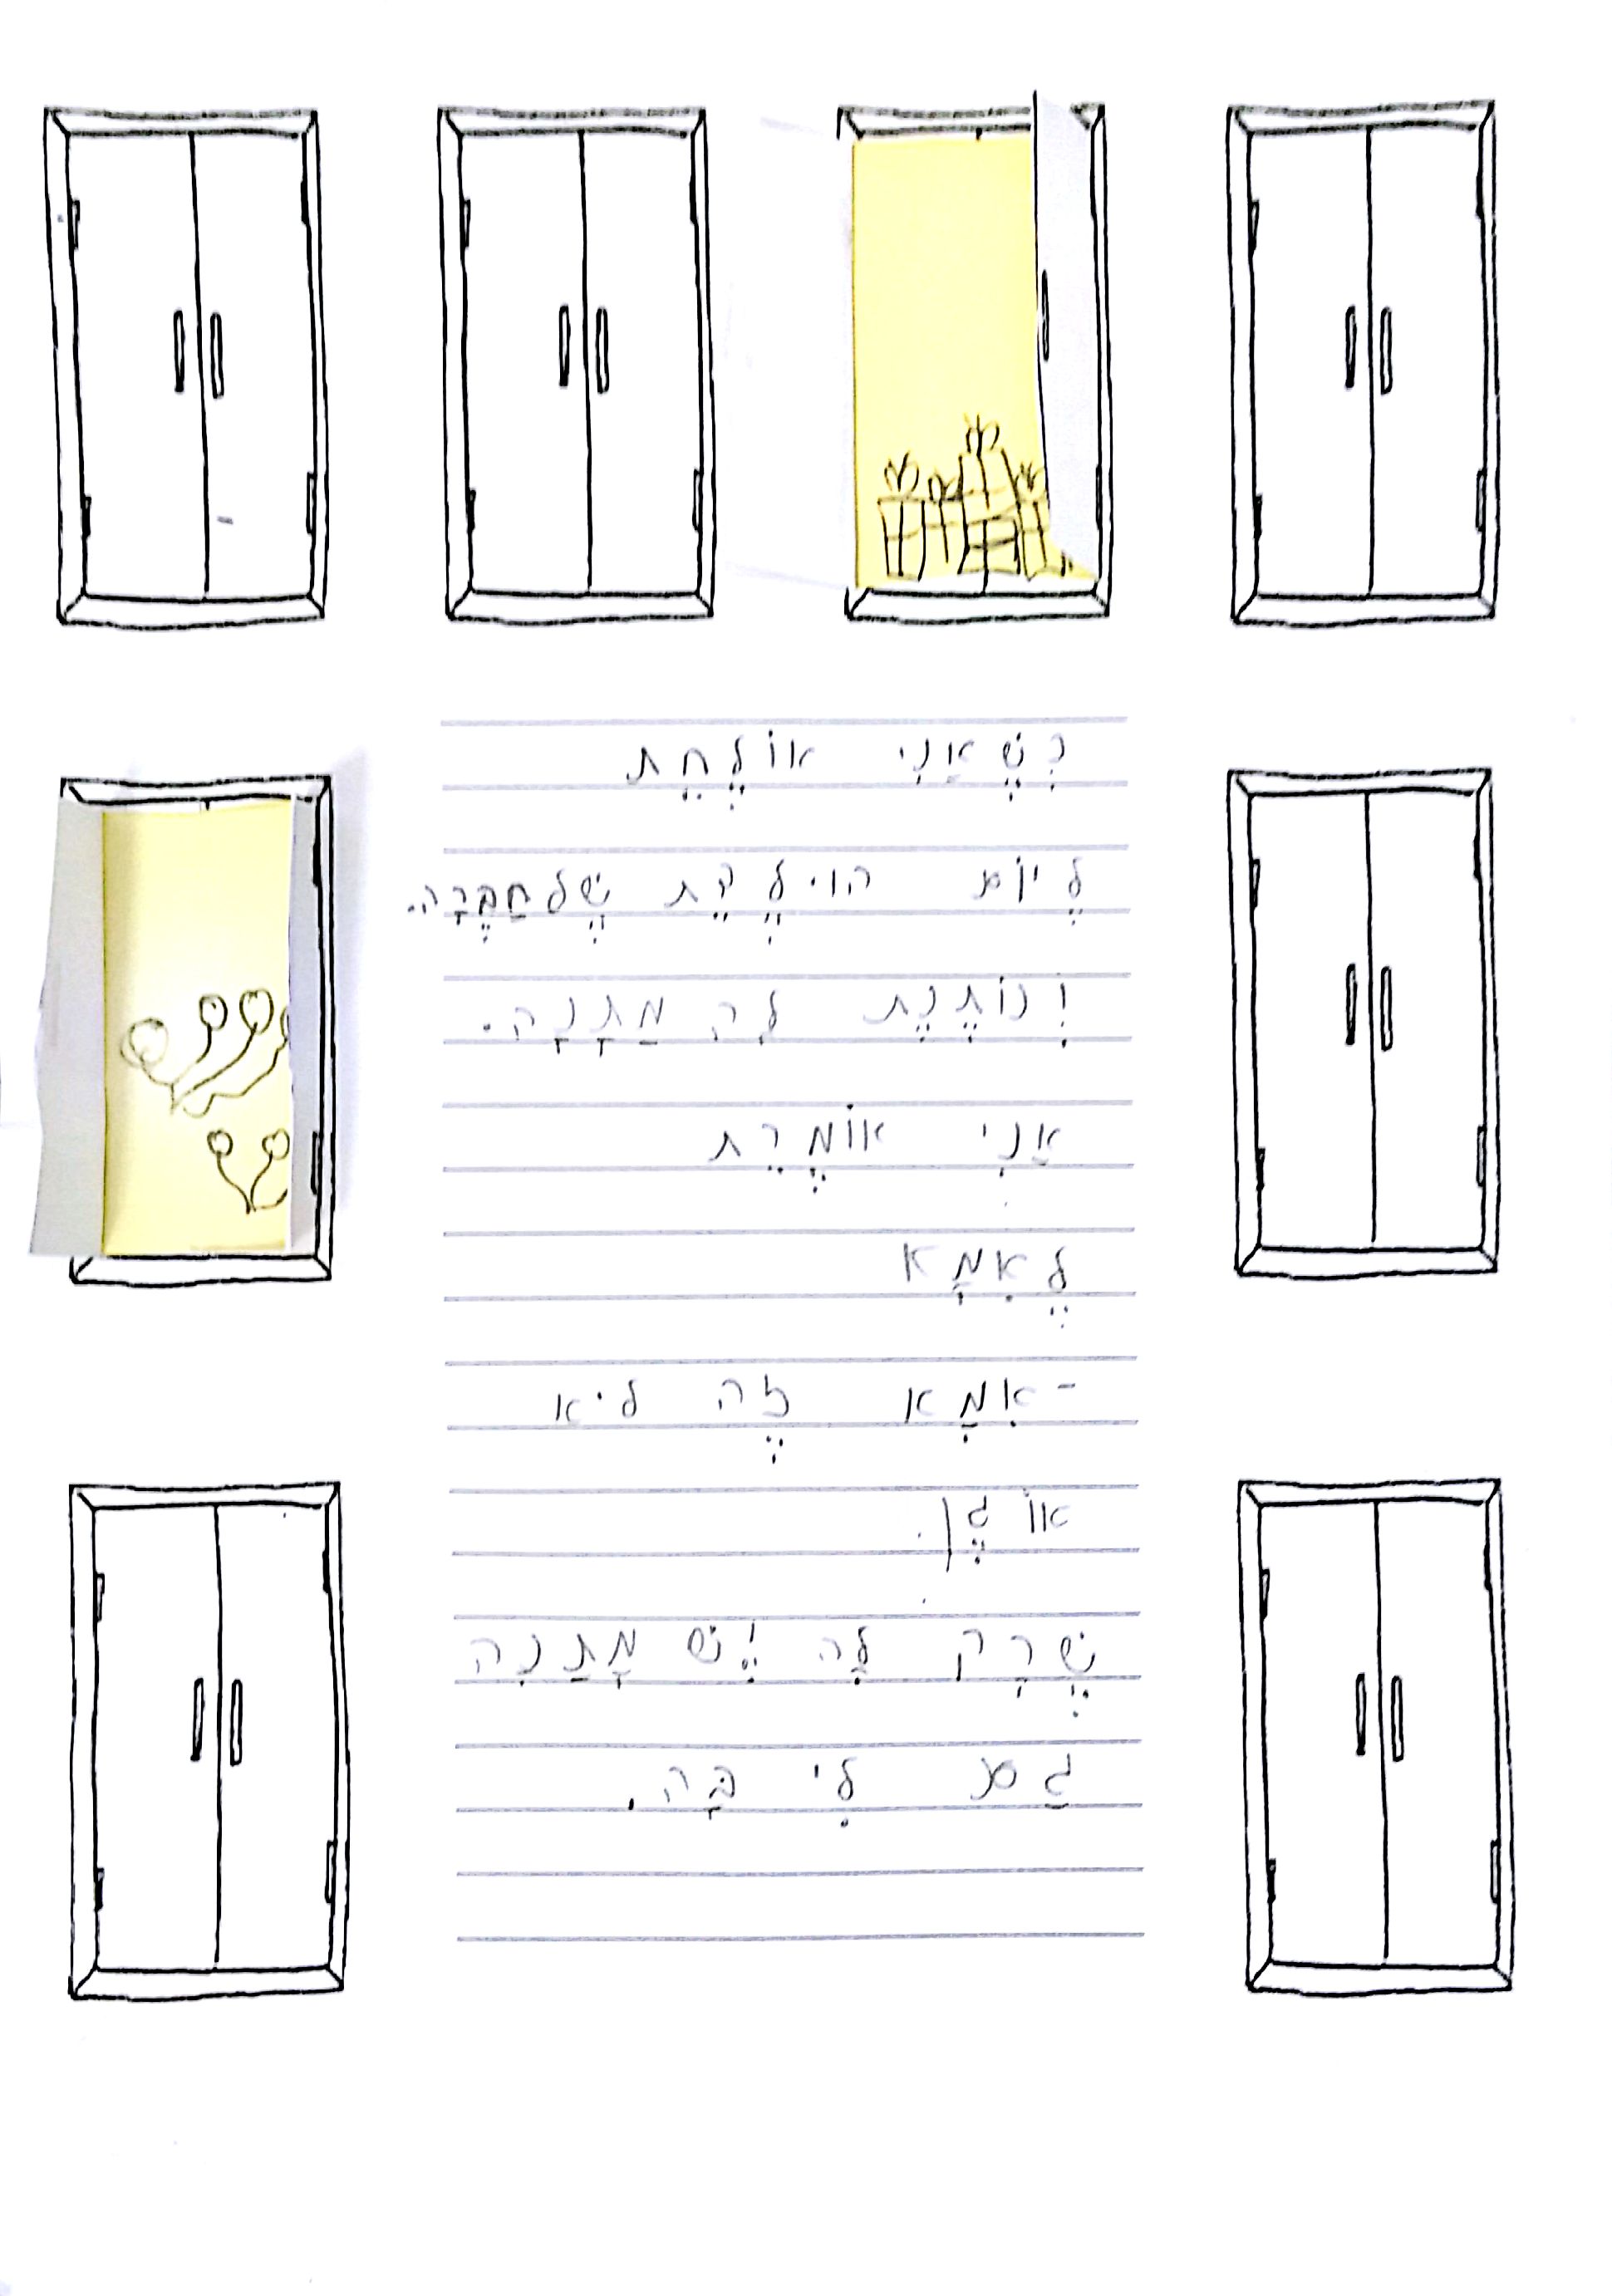 כְּשֶׁאַנִי אוֹלֶחֶת
לֶ יוֹם הוּלֶדֶת שֶׁלחַבֶרָה.
וְנוֹתֶנֶת לָה מַתָנָה.
אַנִי אוֹמֶרֶת
לֶאִמָא
-אִמָא זֶה ליא
אוֹ גֶן.
שֶׁרָק לָה יֶשׁ מָתַנָה
גַם לִי בָּה.